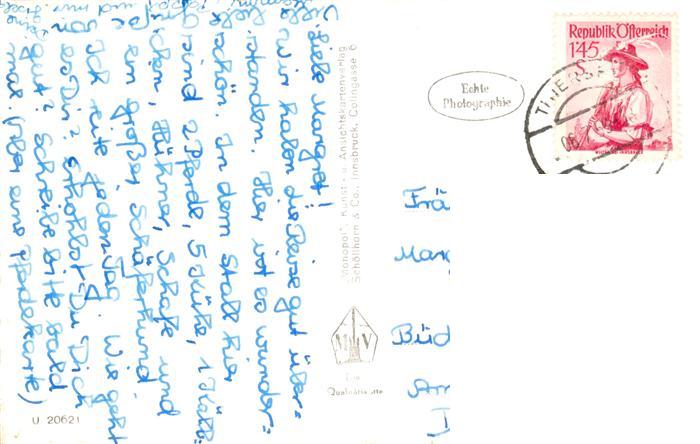 Liebe Margret!
wir haben die Reise gut über=
standen. Hier ist es wunder=
schön. In dem Stall hier
sind 2 Pferde, 5 Kühe, 1 Kälb=
chen, Hühner, Schafe und
ein großer Schäferhund.
Ich reite jeden Tag. Wie geht
es Dir? Erholst Du Dich
gut? Schreibe bitte bald
mal. (Aber eine Pferdekarte)
"Monopol", Kunst- u. Ansichtskartenverlag
Schöllhorn & Co., Innsbruck, Colingasse 6
Echte
Photographie
Republik Österreich
1'45 S
THIERS
Frä
Marg
Büd
MKV
Ein
Qualitäts
U 20621